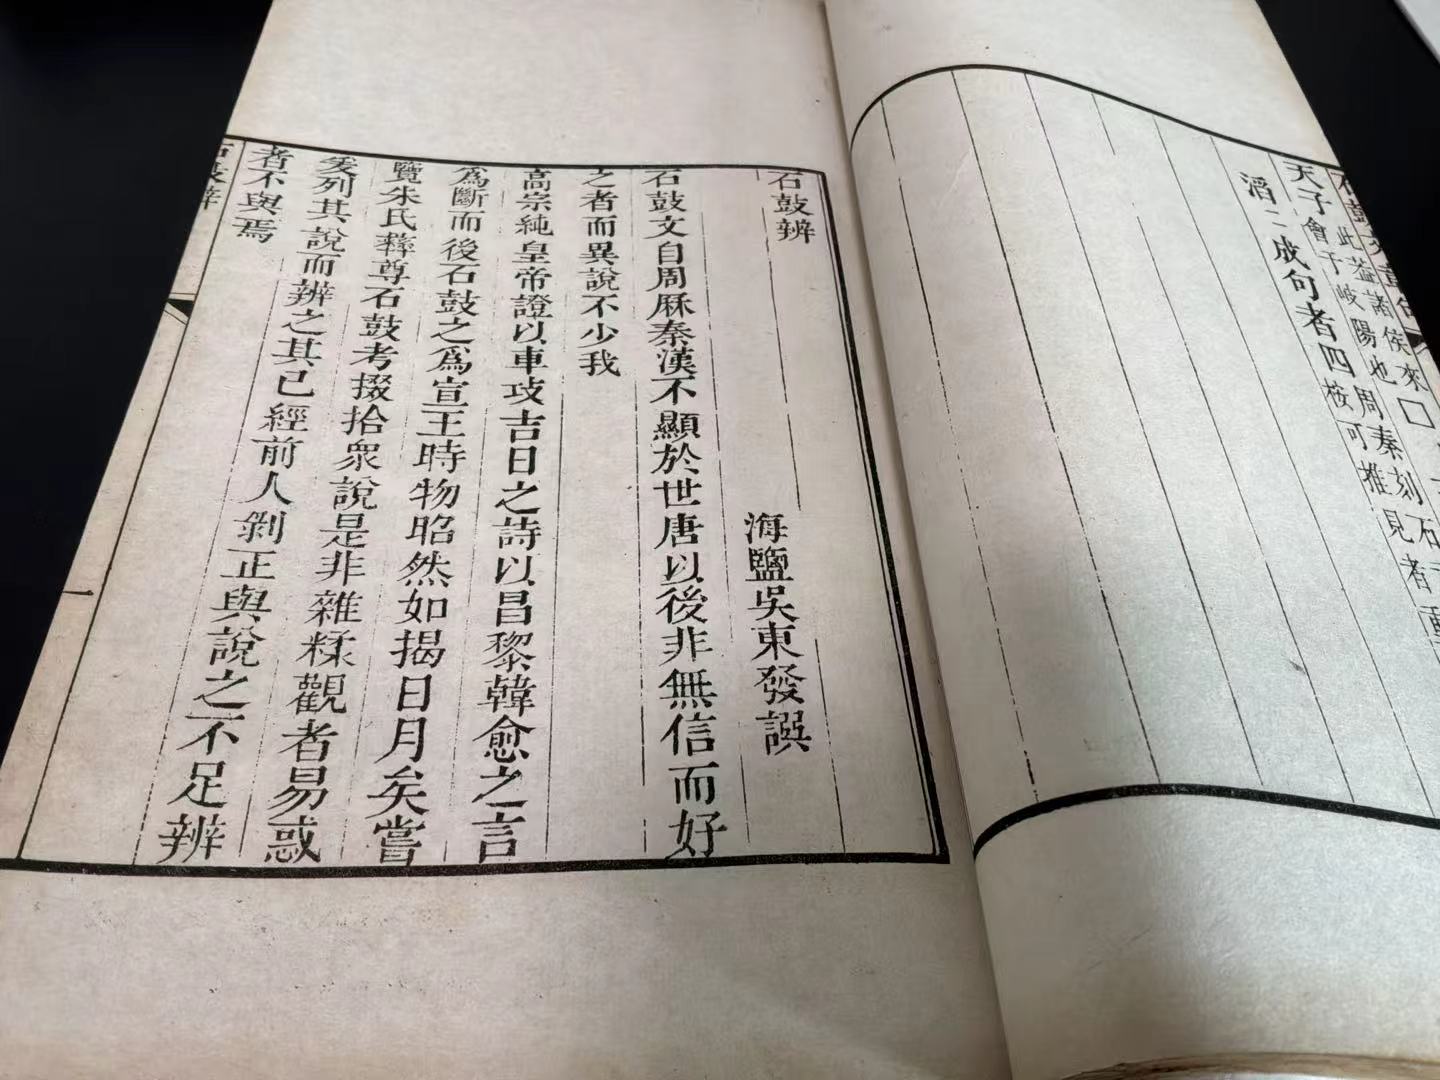 此葢諸侯來□
天子會于岐陽也周秦刻石
滔二成句者四桉可推見者
石鼓辨
海鹽吳東發譔
石鼓文自周厤秦漢不顯於世唐以後非無信而好
之者而異說不少我
高宗純皇帝證以車攻吉日之詩以昌黎韓愈之言
為斷而後石鼓之爲宣王時物昭然如揭日月矣嘗
覽朱氏彝尊石鼓考掇拾衆說是非雜糅觀者易惑
爰列其說而辨之其已經前人剝正與說之不足辨
者不與焉
石鼓辨
一